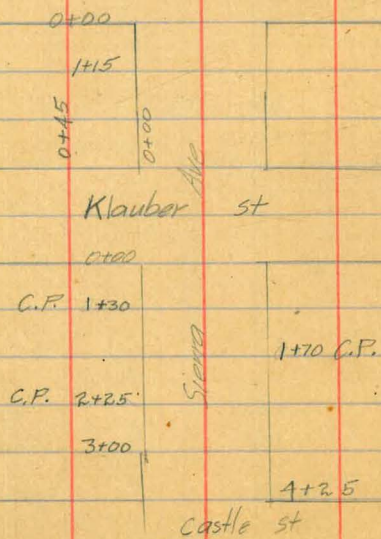 0+00
1+15
0+45
0+00
Sierra Ave
Klauber st
0+00
C.P. 1+30
1+70 C.P.
C.P. 2+25
3+00
4+25
Castle st